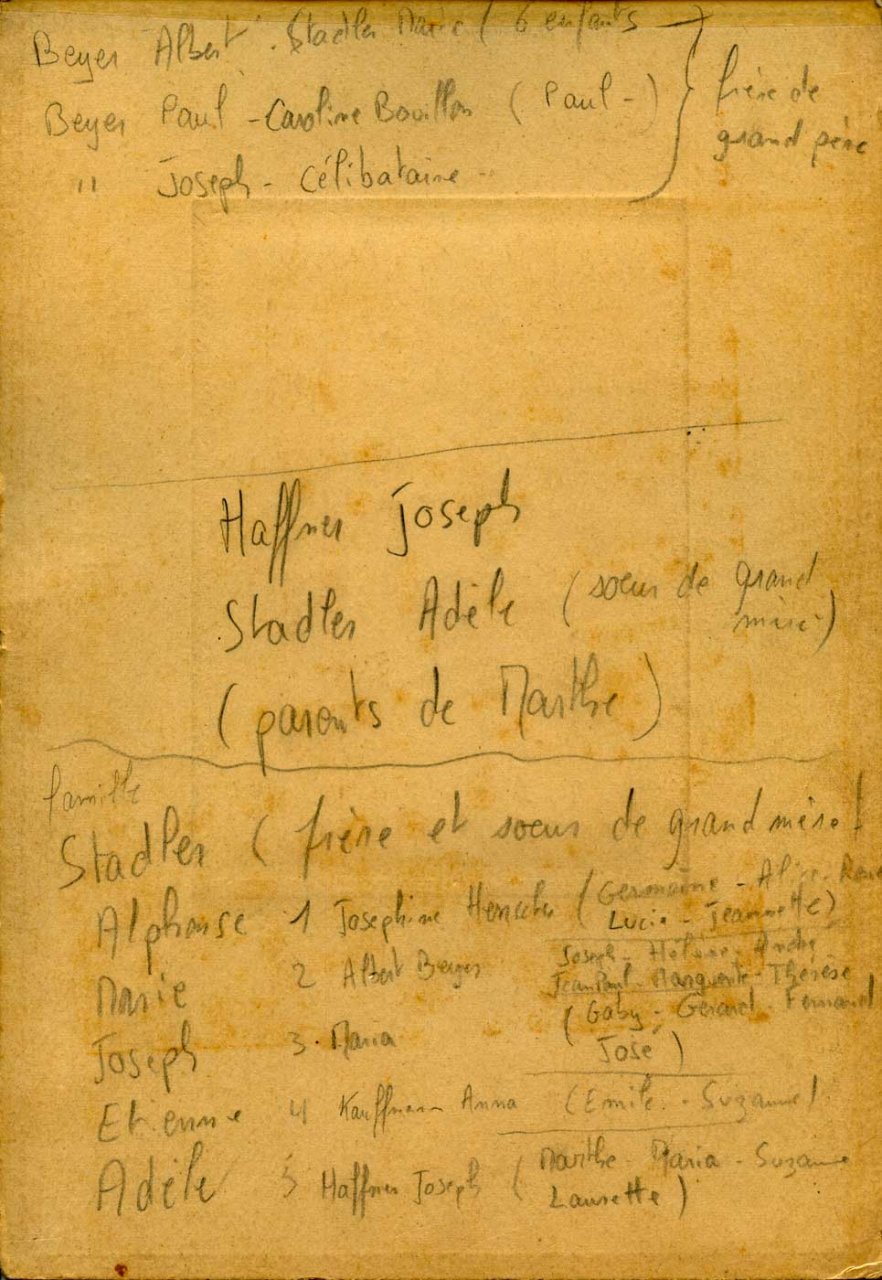 Beyer Albert - Stadler Marie ( 6 enfants
Beyer Paul - Caroline Bouillon ( Paul - )
" Joseph - Célibataire -
frère de
grand père
Haffner Joseph
Stadler Adèle (soeur de grand
mère)
(parents de Marthe)
famille
Stadler ( frère et soeur de grand mère)
Alphonse 1 Josephine ( Germaine - Alice - René
Lucie - Jeannette)
Marie 2 Albert Beyer Joseph - Hélène - André
Jean Paul - Marguerite - Thérèse
Joseph 3. Maria ( Gaby - Gerard - Fernand
José )
Etienne 4 Kauffmann Anna (Emile - Suzanne)
Adèle 5 Haffner Joseph ( Marthe - Maria - Suzanne
Laurette )